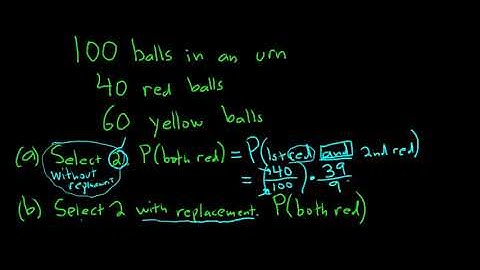 100 balls in an urn
40 red balls
60 yellow balls
(a) Select 2 P(both red) = P(1st red and 2nd red)
without replacement = 40/100 · 39/9
(b) Select 2 with replacement. P(both red)